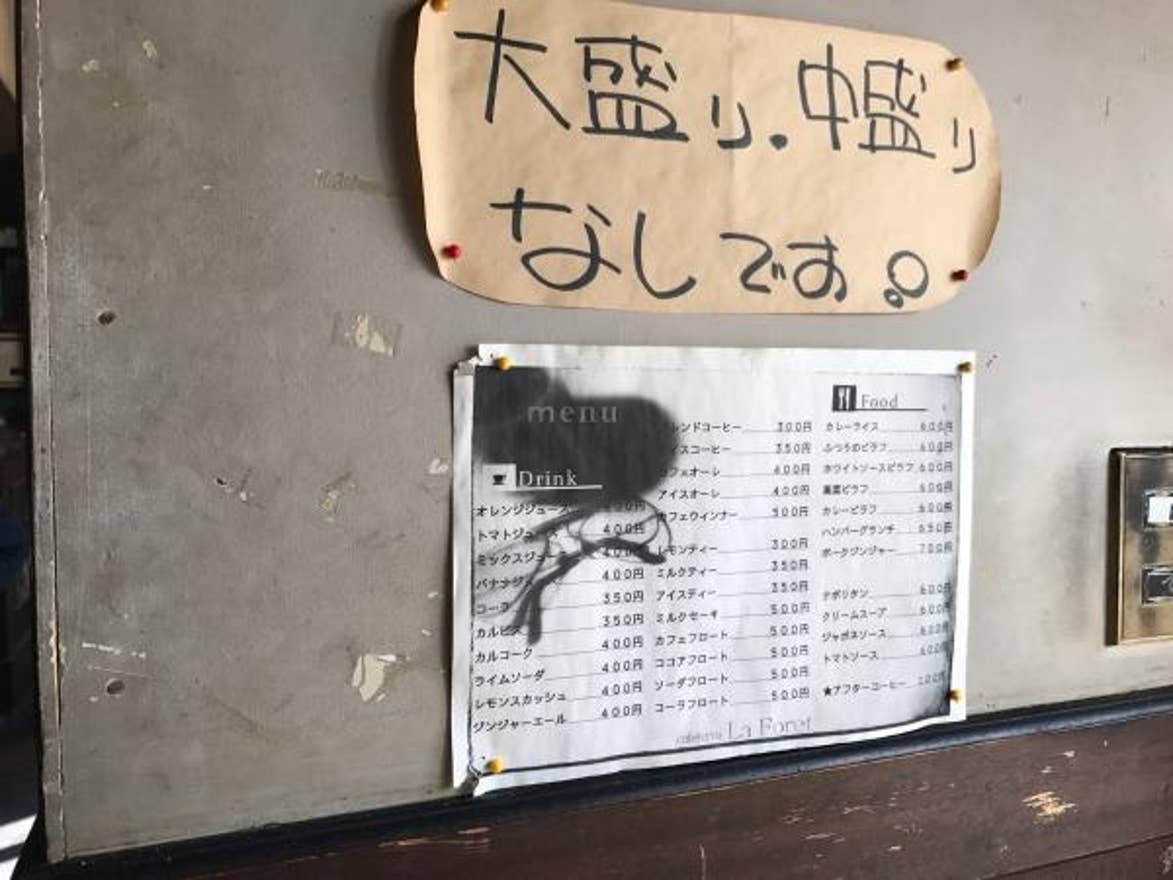 大盛り.中盛り
なしです。
menu
Drink
オレンジジュース
トマトジュ 400円
ミックスジュー 400円
バナナジ 400円
コーラ 350円
カルピス 350円
カルコーク 400円
ライムソーダ 400円
レモンスカッシュ 400円
ジンジャーエール 400円
レンドコーヒー 300円
イスコーヒー 350円
カフェオーレ 400円
アイスオーレ 400円
カフェウィンナー 500円
レモンティー 300円
ミルクティー 350円
アイスティー 350円
ミルクセーキ 500円
カフェフロート 500円
ココアフロート 500円
ソーダフロート 500円
コーラフロート 500円
Food
カレーライス 600円
ふつうのピラフ 600円
ホワイトソースピラフ 600円
高菜ピラフ 600円
カレーピラフ 600円
ハンバーグランチ 650円
ポークジンジャー 700円
ナポリタン 600円
クリームスープ 600円
ジャポネソース 600円
トマトソース 600円
★アフターコーヒー
La Foret